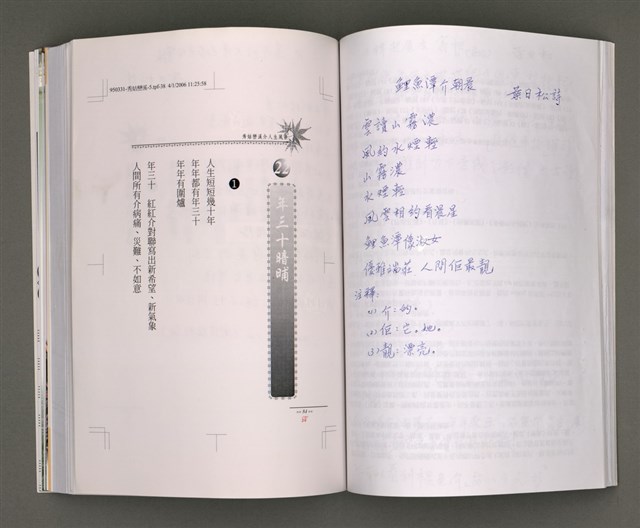 950331-秀姑巒溪-5.sp6 38 4/1/2006 11:25:58
秀姑巒溪介人生風景
22
年三十暗晡
❶
人生短短幾十年
年年都有年三十
年年有圍爐
年三十 紅紅介對聯寫出新希望、新氣象
人間所有介病痛、災難、不如意
鯉魚潭介朝晨
葉日松詩
雲讀山霧濃
風約水煙輕
山霧濃
水煙輕
風雲相約看晨星
鯉魚潭像淑女
優雅端莊 人間佢最靚
注釋:
(1)介:的。
(2)佢:它。她。
(3)靚:漂亮。